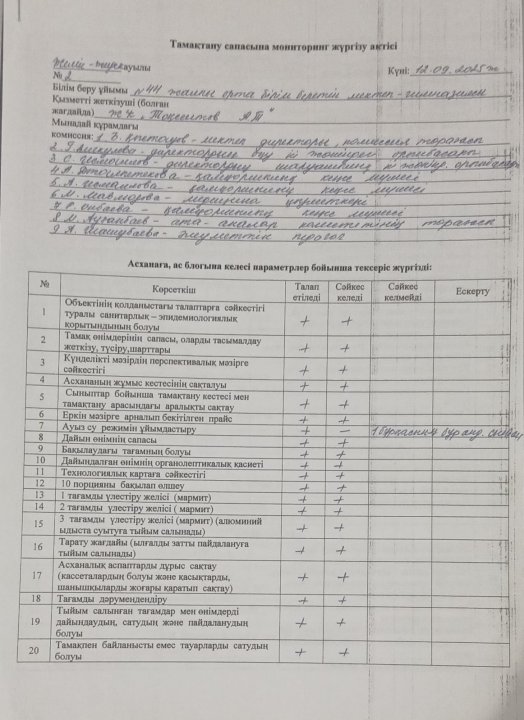 Тамақтану сапасына мониторинг жүргізу актісі
Желі - жиек ауылы
Күні: 12.09.2025ж
№ 2
Білім беру ұйымы №44 жалпы орта білім беретін мектеп-гимназиясы
Қызметті жеткізуші (болған
жағдайда) ЖК "Токсеитов А.П"
Мынадай құрамдағы
комиссия: 1. мектеп директоры, комиссия төрағасы
2. директордың бейінді ісі жөніндегі орынбасары
3. О. директордың шаруашылық ісі жөнінд. орынбасары
4. қамқоршылық кеңес мүшесі
5. А. Исмаилова - қамқоршылық кеңес мүшесі
6. М. медицина қызметкері
7. қамқоршылық кеңес мүшесі
8. М. ата-аналар комитетінің төрағасы
9. А. әлеуметтік педагог
Асханаға, ас блогына келесі параметрлер бойынша тексеріс жүргізді:
№ Көрсеткіш Талап етіледі Сәйкес келеді Сәйкес келмейді Ескерту
1 Объектінің қолданыстағы талаптарға сәйкестігі
туралы санитарлық – эпидемиологиялық
қорытындының болуы + +
2 Тамақ өнімдерінің сапасы, оларды тасымалдау
жеткізу, түсіру,шарттары + +
3 Күнделікті мәзірдің перспективалық мәзірге
сәйкестігі + +
4 Асхананың жұмыс кестесінің сақталуы + +
5 Сыныптар бойынша тамақтану кестесі мен
тамақтану арасындағы аралықты сақтау + +
6 Еркін мәзірге арналып бекітілген прайс + +
7 Ауыз су режимін ұйымдастыру + –
8 Дайын өнімнің сапасы + +
9 Бақылаудағы тағамның болуы + +
10 Дайындалған өнімнің органолептикалық қасиеті + +
11 Технологиялық картаға сәйкестігі + +
12 10 порцияны бақылап өлшеу + +
13 1 тағамды үлестіру желісі (мармит) + +
14 2 тағамды үлестіру желісі ( мармит) + +
15 3 тағамды үлестіру желісі (мармит) (алюминий
ыдыста суытуға тыйым салынады) + +
16 Тарату жағдайы (ылғалды затты пайдалануға
тыйым салынады) + +
17 Асханалық аспаптарды дұрыс сақтау
(кассеталардың болуы және қасықтарды,
шанышқыларды жоғары қаратып сақтау) + +
18 Тағамды дәрумендендіру + +
19 Тыйым салынған тағамдар мен өнімдерді
дайындаудың, сатудың және пайдаланудың
болуы + +
20 Тамақпен байланысты емес тауарларды сатудың
болуы + +